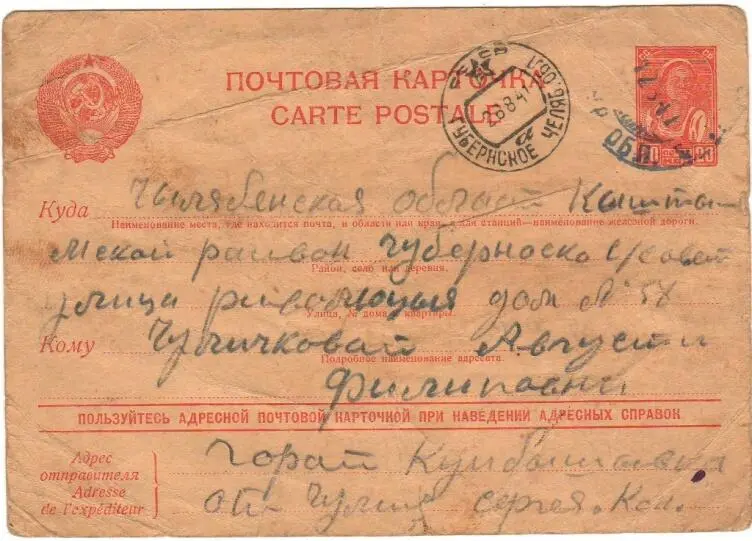 ПОЧТОВАЯ КАРТОЧКА
CARTE POSTALE
ГУБЕРНСКОЕ ЧЕЛЯБ. ОБЛ.
26841
а
Куда Чилябенская област Кашта
Наименование места, где находится почта, и области или края, а для станций—наименование железной дороги.
мской раивон Губерноско
Район, село или деревня.
улица дом № 58
Улица, № дома и квартиры.
Кому Августи
Подробное наименование адресата.
Филиповни
ПОЛЬЗУЙТЕСЬ АДРЕСНОЙ ПОЧТОВОЙ КАРТОЧКОЙ ПРИ НАВЕДЕНИИ АДРЕСНЫХ СПРАВОК
Адрес
отправителя
Adresse
de l'expéditeur
Горат Куибышава
от сергея. Кон.